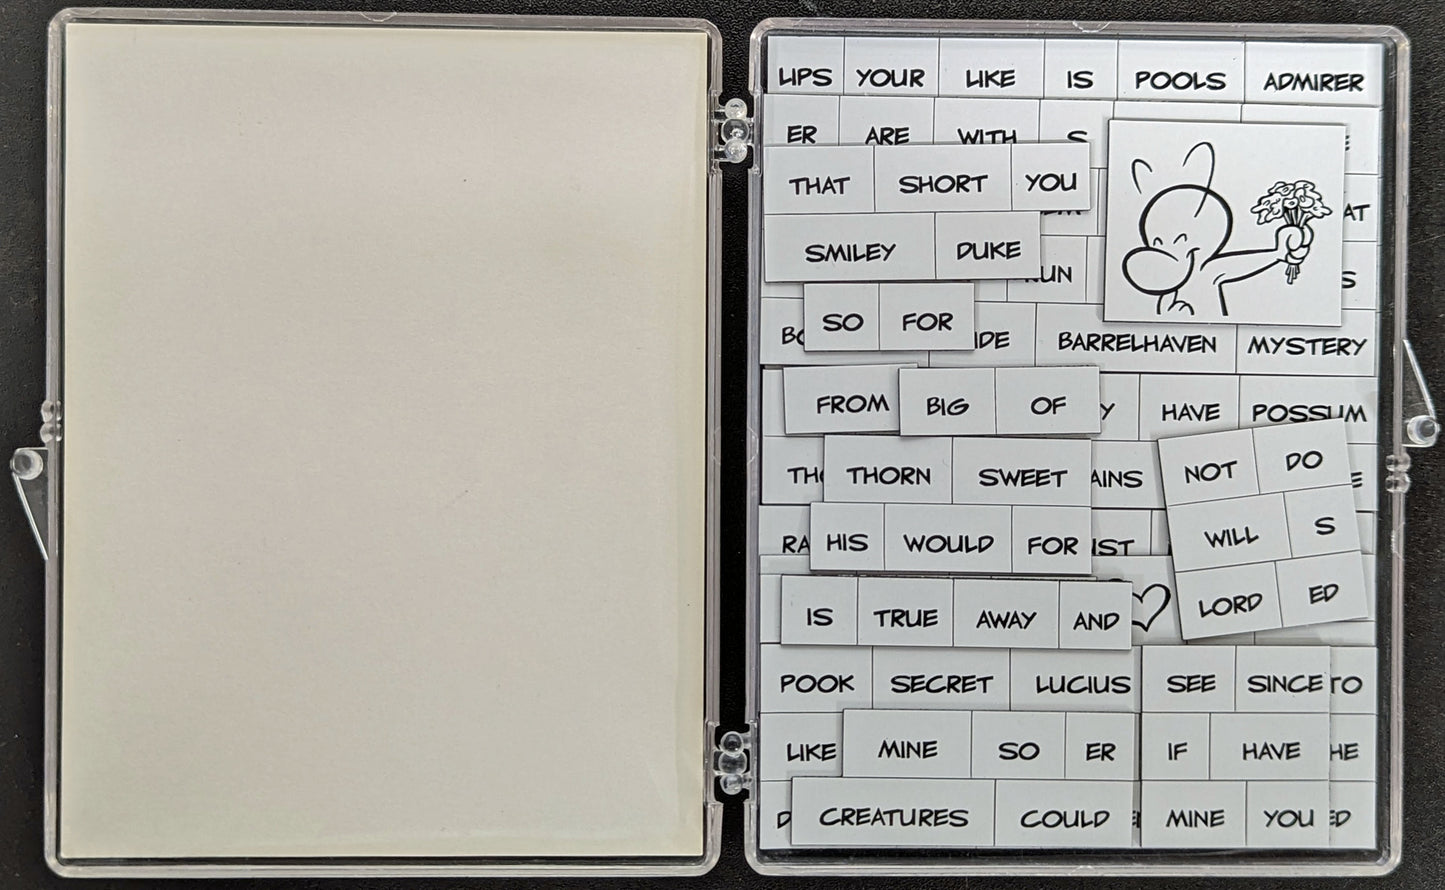 LIPS YOUR LIKE IS POOLS ADMIRER
ER ARE WITH S
THAT SHORT YOU
SMILEY DUKE
SO FOR
BARRELHAVEN MYSTERY
FROM BIG OF HAVE POSSUM
THORN SWEET NOT DO
HIS WOULD FOR WILL S
IS TRUE AWAY AND LORD ED
POOK SECRET LUCIUS SEE SINCE TO
LIKE MINE SO ER IF HAVE
CREATURES COULD MINE YOU